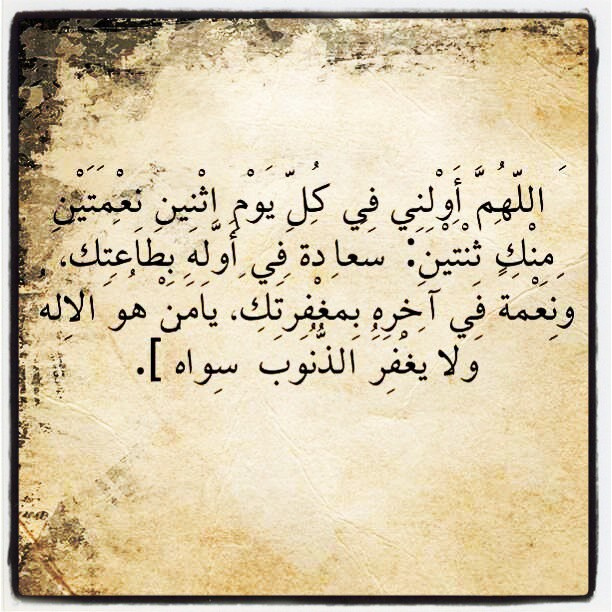 اَللّهُمَّ أَوْلِنِي فِي كُلِّ يَوْمِ اثْنِينِ نِعْمَتَيْنِ
مِنْكَ ثْنْتَيْنَ: سعادة فِي أَوَّلهِ بِطَاعَتِكَ،
وَنِعْمَة فَي آخِرِهِ بِمغْفِرتَكِ، يامَنْ هوَ الاِلهُ
وَلا يغْفِرُ الذُّنُوبَ سِواه ].